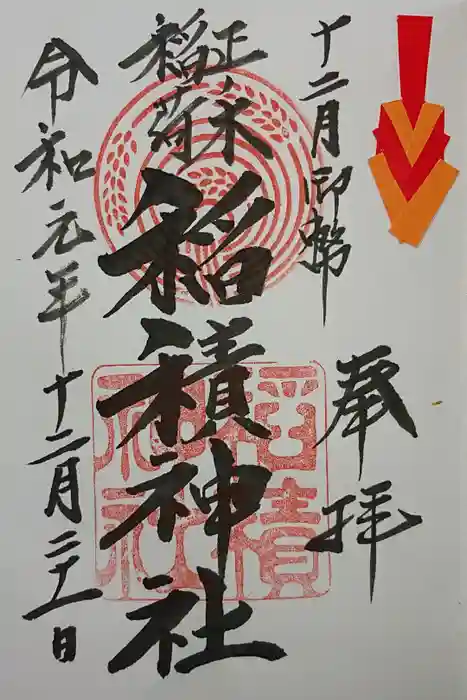 十二月御幣
奉拝
正一木
稲荷
稲積神社
稲積
神社
令和元年十二月二十一日